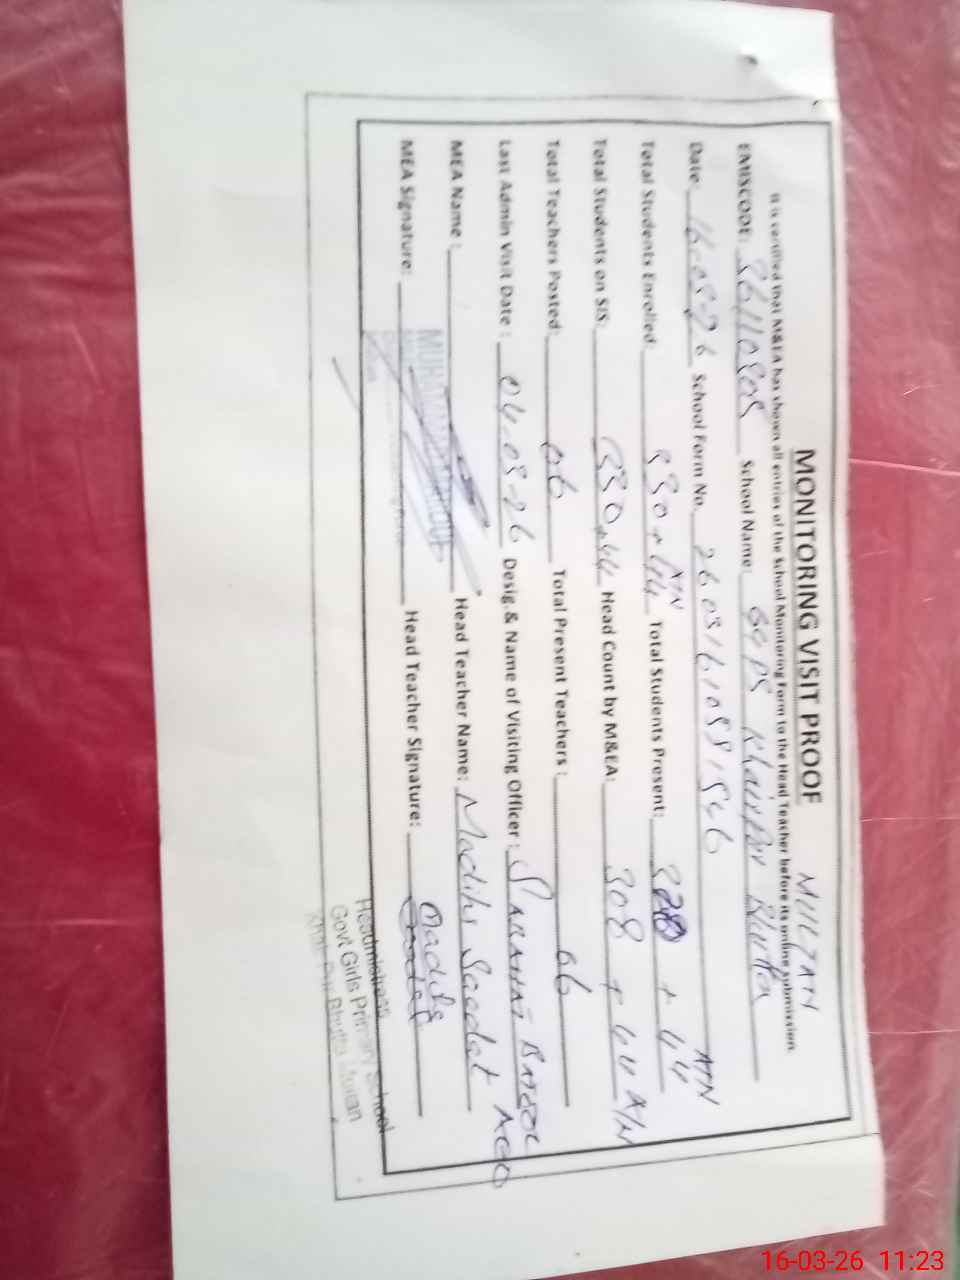 MONITORING VISIT PROOF MULTAN
It is certified that M&EA has shown all entries of the School Monitoring Form to the Head Teacher before its online submission.
EMISCODE: School Name: GGPS Khairpur Bhutta
Date 16-03-26 School Form No. 
Total Students Enrolled: 330 + 44 Total Students Present: + 44
Total Students on SIS: 330+44 Head Count by M&EA: 308 + 44
Total Teachers Posted: 06 Total Present Teachers: 06
Last Admin Visit Date: 04.03-26 Desig.& Name of Visiting Officer: BATOOL AEO
MEA Name: Head Teacher Name: Madiha Saadat
MEA Signature: Head Teacher Signature: Madiha
Headmistress
Govt Girls Primary School
16-03-26 11:23